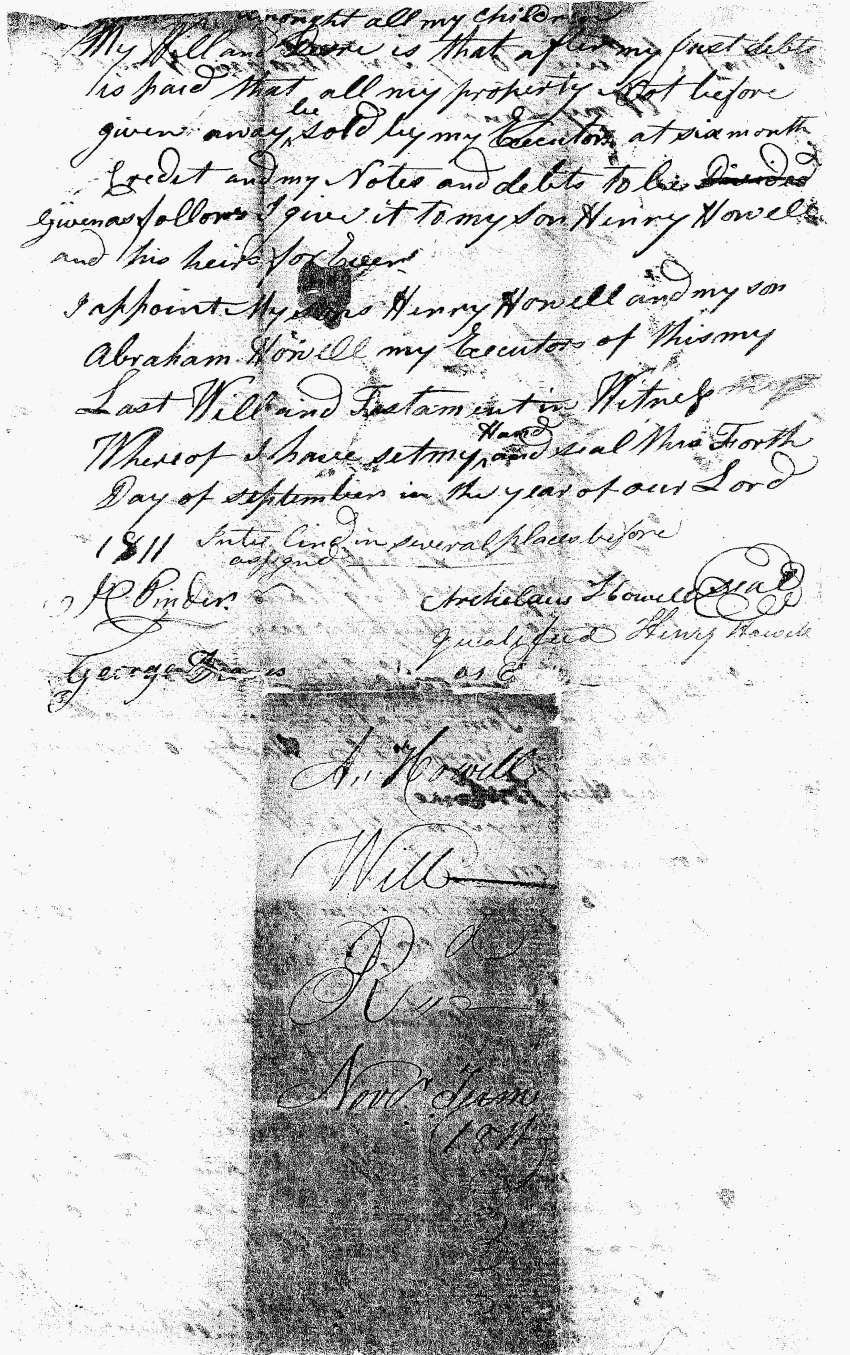 all my children
My Will and Desire is that after my Just debts
is paid that all my property Not before
given away be sold by my Executors at six month
Credet and my Notes and debts to be Divided
Given as follows I give it to my son Henry Howell
and his heirs for Ever
I appoint My sons Henry Howell and my son
Abraham Howell my Executors of this my
Last Will and Testament in Witness
Whereof I have set my Hand and seal this Forth
Day of september in the year of our Lord
1811 Inter lind in several places before
assigned
Pinder
Archelaus Howell seal
qualified Henry Howell
George
as E
A. Howell
Will
Novr. Term
1811